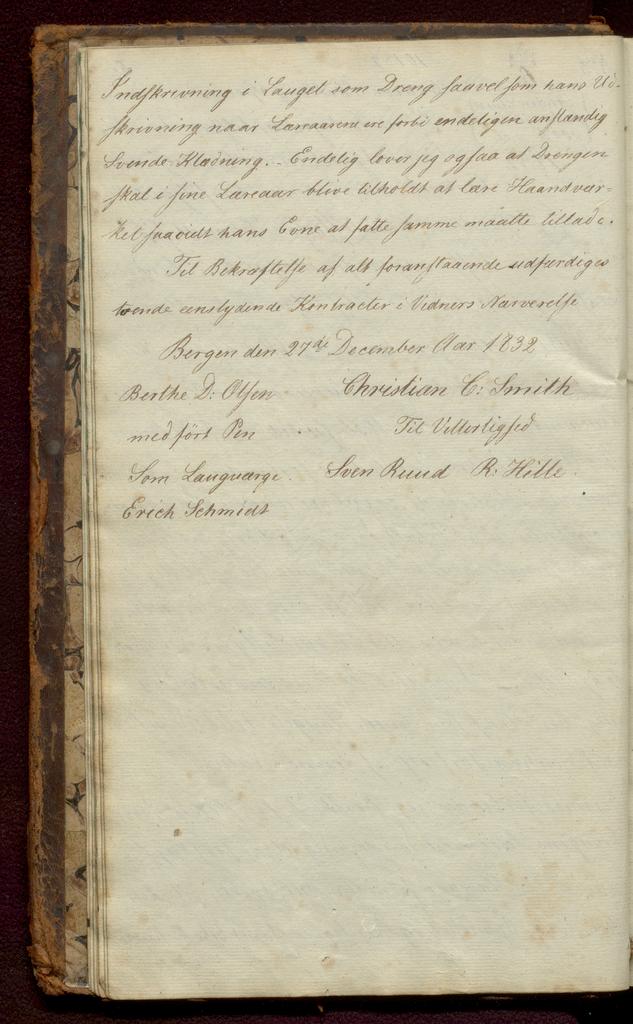 Indskrivning i Lauget som Dreng saavelsom hans Ud-
skrivning naar Læreaarene ere forbi endeligen anstændig
Svende-Klædning. - Endelig lover jeg ogsaa at Drengen
skal i sine Læreaar blive tilholdt at lære Haandvær-
ket saavidt hans Evne at fatte samme maatte tillade.
Til Bekræftelse af alt foranstaaende udfærdiges
tvende eenslydende Kontracter i Vidners Nærværelse
Bergen den 27de December Aar 1832
Berthe D: Olsen Christian C: Smith
med ført Pen Til Vitterlighed
Som Laugværge. Sven Ruud R: Hille.
Erich Schmidt